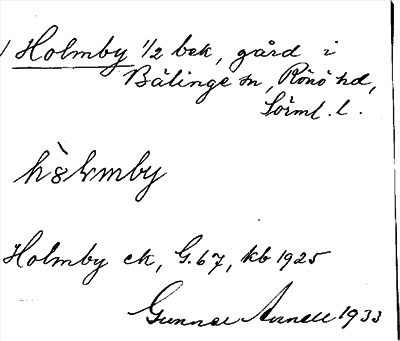 Holmby 1/2 bek, gård i
Bälinge sn, Rönö hd,
Sörml. l.
hò̀lmby
Holmby ek, G. 67, kb 1925
Gunnar Arnell 1933